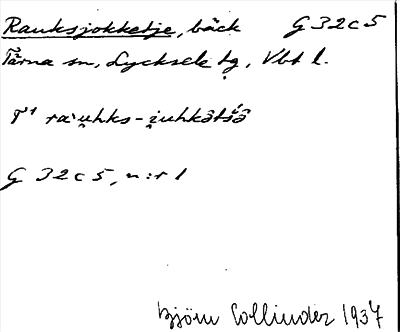 Rauksjokketje, bäck G 32 c 5
Tärna sn, Lycksele tg, Vbt l.
G 32 c 5, n:r 1
Björn Collinder 1937